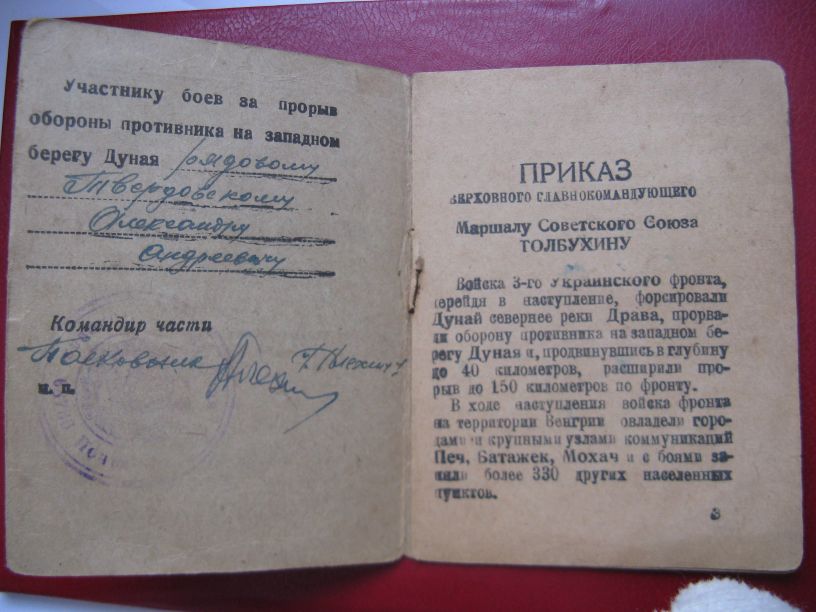 Участнику боев за прорыв
обороны противника на западном
берегу Дуная рядовому
Твердовскому
Александру
Андреевичу
Командир части
Полковник
м. п.
ПРИКАЗ
ВЕРХОВНОГО ГЛАВНОКОМАНДУЮЩЕГО
Маршалу Советского Союза
ТОЛБУХИНУ
Войска 3-го Украинского фронта,
перейдя в наступление, форсировали
Дунай севернее реки Драва, прорва-
ли оборону противника на западном бе-
регу Дуная и, продвинувшись в глубину
до 40 километров, расширили про-
рыв до 150 километров по фронту.
В ходе наступления войска фронта
на территории Венгрии овладели горо-
дами и крупными узлами коммуникаций
Печ, Батажек, Мохач и с боями за-
няли более 330 других населенных
пунктов.
3